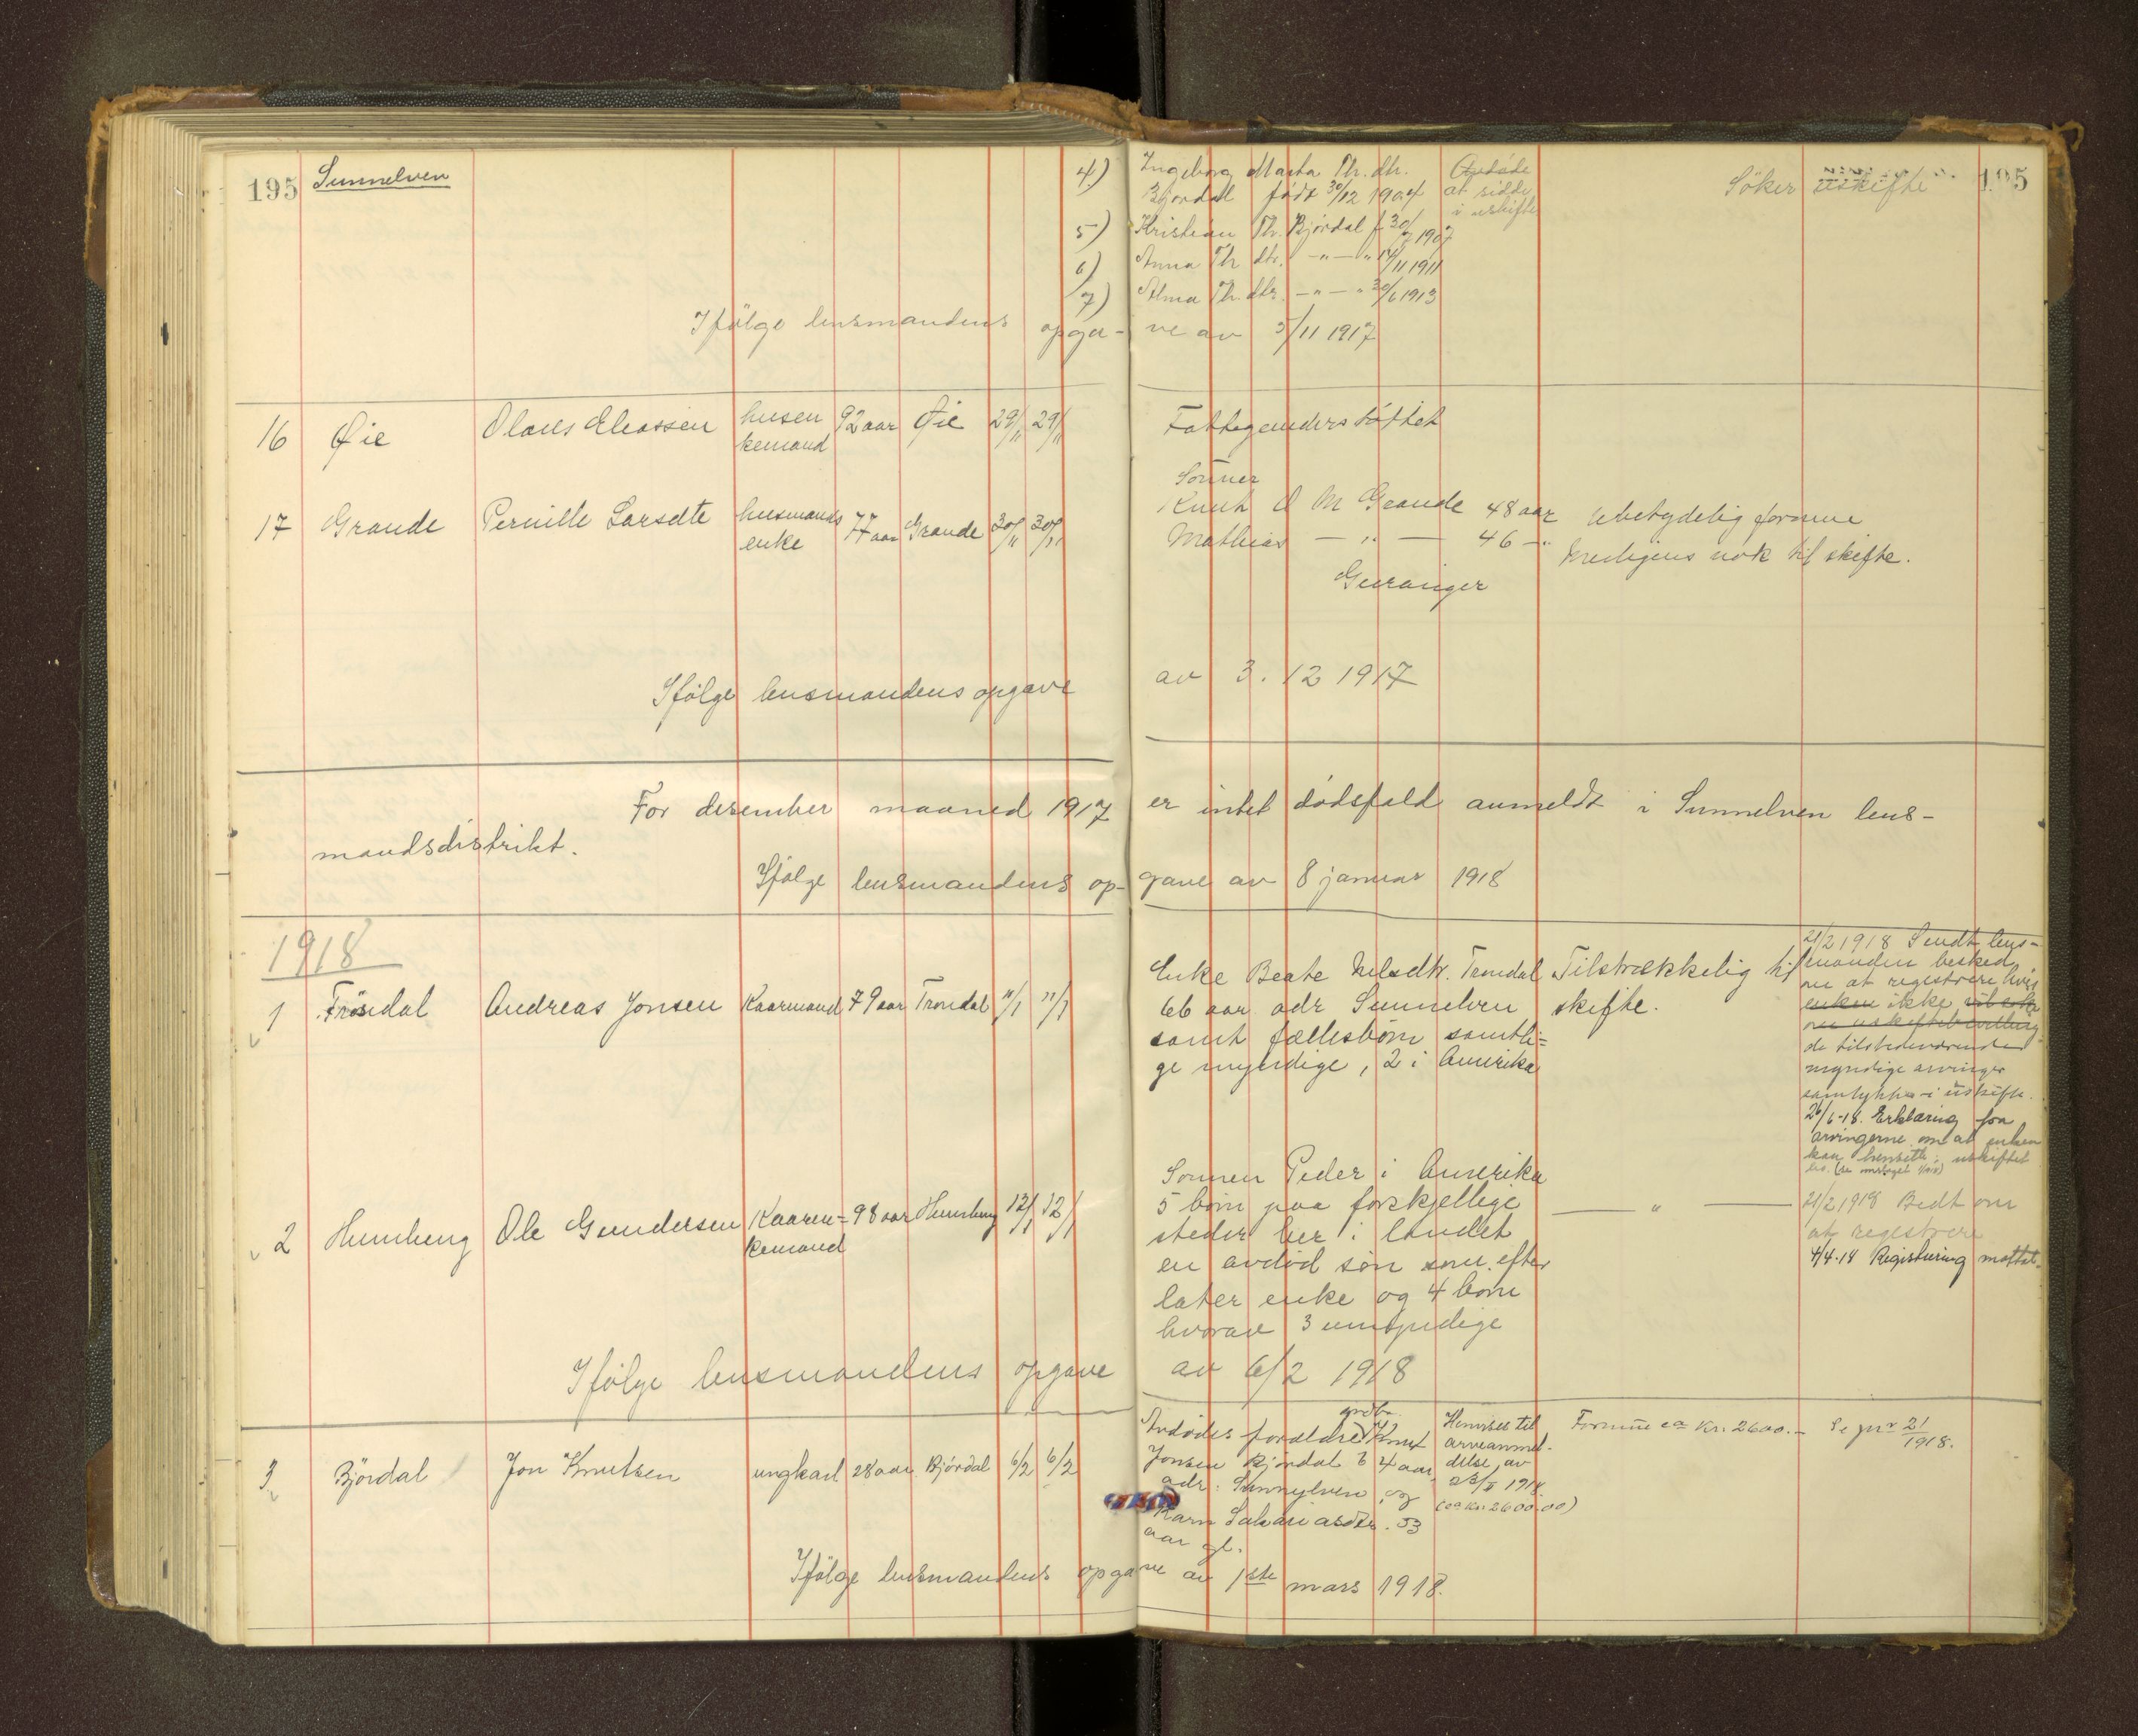 195 Sunnelven
4) Ingeborg Marta Th. dtr. Bjordal født 30/12 1904
at sidde i uskifte
Söker uskifte 195
5) Kristian Th. Bjørdal f 30/7 1907
6) Anna Th dtr. -"-" 14/11 1911
7) Alma Th. dtr. -"-" 30/6 1913
Ifølge lensmandens opga-ve av 5/11 1917
16 Øie Olaus Eliassen husen kemand 92 aar Øie 29/11 29/11 Fattigunderstøttet
17 Grande Pernille Larsdtr husmands enke 77 aar Grande 30/11 30/11
Sønner
Knut O M Grande 48 aar
Mathias -"- 46 -"
Geiranger
Ubetydelig formue
Neeligens nok til skifte.
Ifølge lensmandens opgave av 3. 12 1917
For desember maaned 1917 er intet dødsfald anmeldt i Sunnelven lens-
mandsdistrikt.
Ifølge lensmandens op-gave av 8 januar 1918
1918
1 Trondal Andreas Jonsen Kaarmand 79 aar Trondal 11/1 11/1
Enke Beate Nilsdtr. Trondal
66 aar adr Sunnelven
samt fællesbørn samtli=
ge myndige, 2 i Amerika
Tilstrækkelig til
skifte.
21/2 1918 Sendt lens-
manden besked
om at registrere hvis
enken ikke
om uskiftebevilling
de tilstedeværende
myndige arvinger
samtykker i uskifte.
26/6-18. Erklæring fra
arvingerne om at enken
kan hensitte i uskiftet
bo.
2 Humberg Ole Gundersen Kaaren= kemand 98 aar Humberg 12/1 12/1
Sønnen Peder i Amerika
5 børn paa forskjellige
steder her i landet
en avdød søn som efter
later enke og 4 børn
hvorav 3 umyndige
— " —
21/2 1918 Bedt om
at registrere
4/4-18 Registrering mottat.
Ifølge lensmandens opgave av 6/2 1918
3 Bjørdal Jon Knutsen ungkarl 28 aar Bjørdal 6/2 6/2
Avdødes forældre grdbr. Knut
Jonsen Bjørdal 64 aar,
adr: Sunnylven, og
Karn Sakariasdtr. 53
aar gl.
Henvises til
arveanmel-
delse av
23/2 1918.
(ca kr. 2600.00)
Formue ca kr. 2600.-
Se jnr 21/1918.
Ifølge lensmandens opgave av 1ste mars 1918.